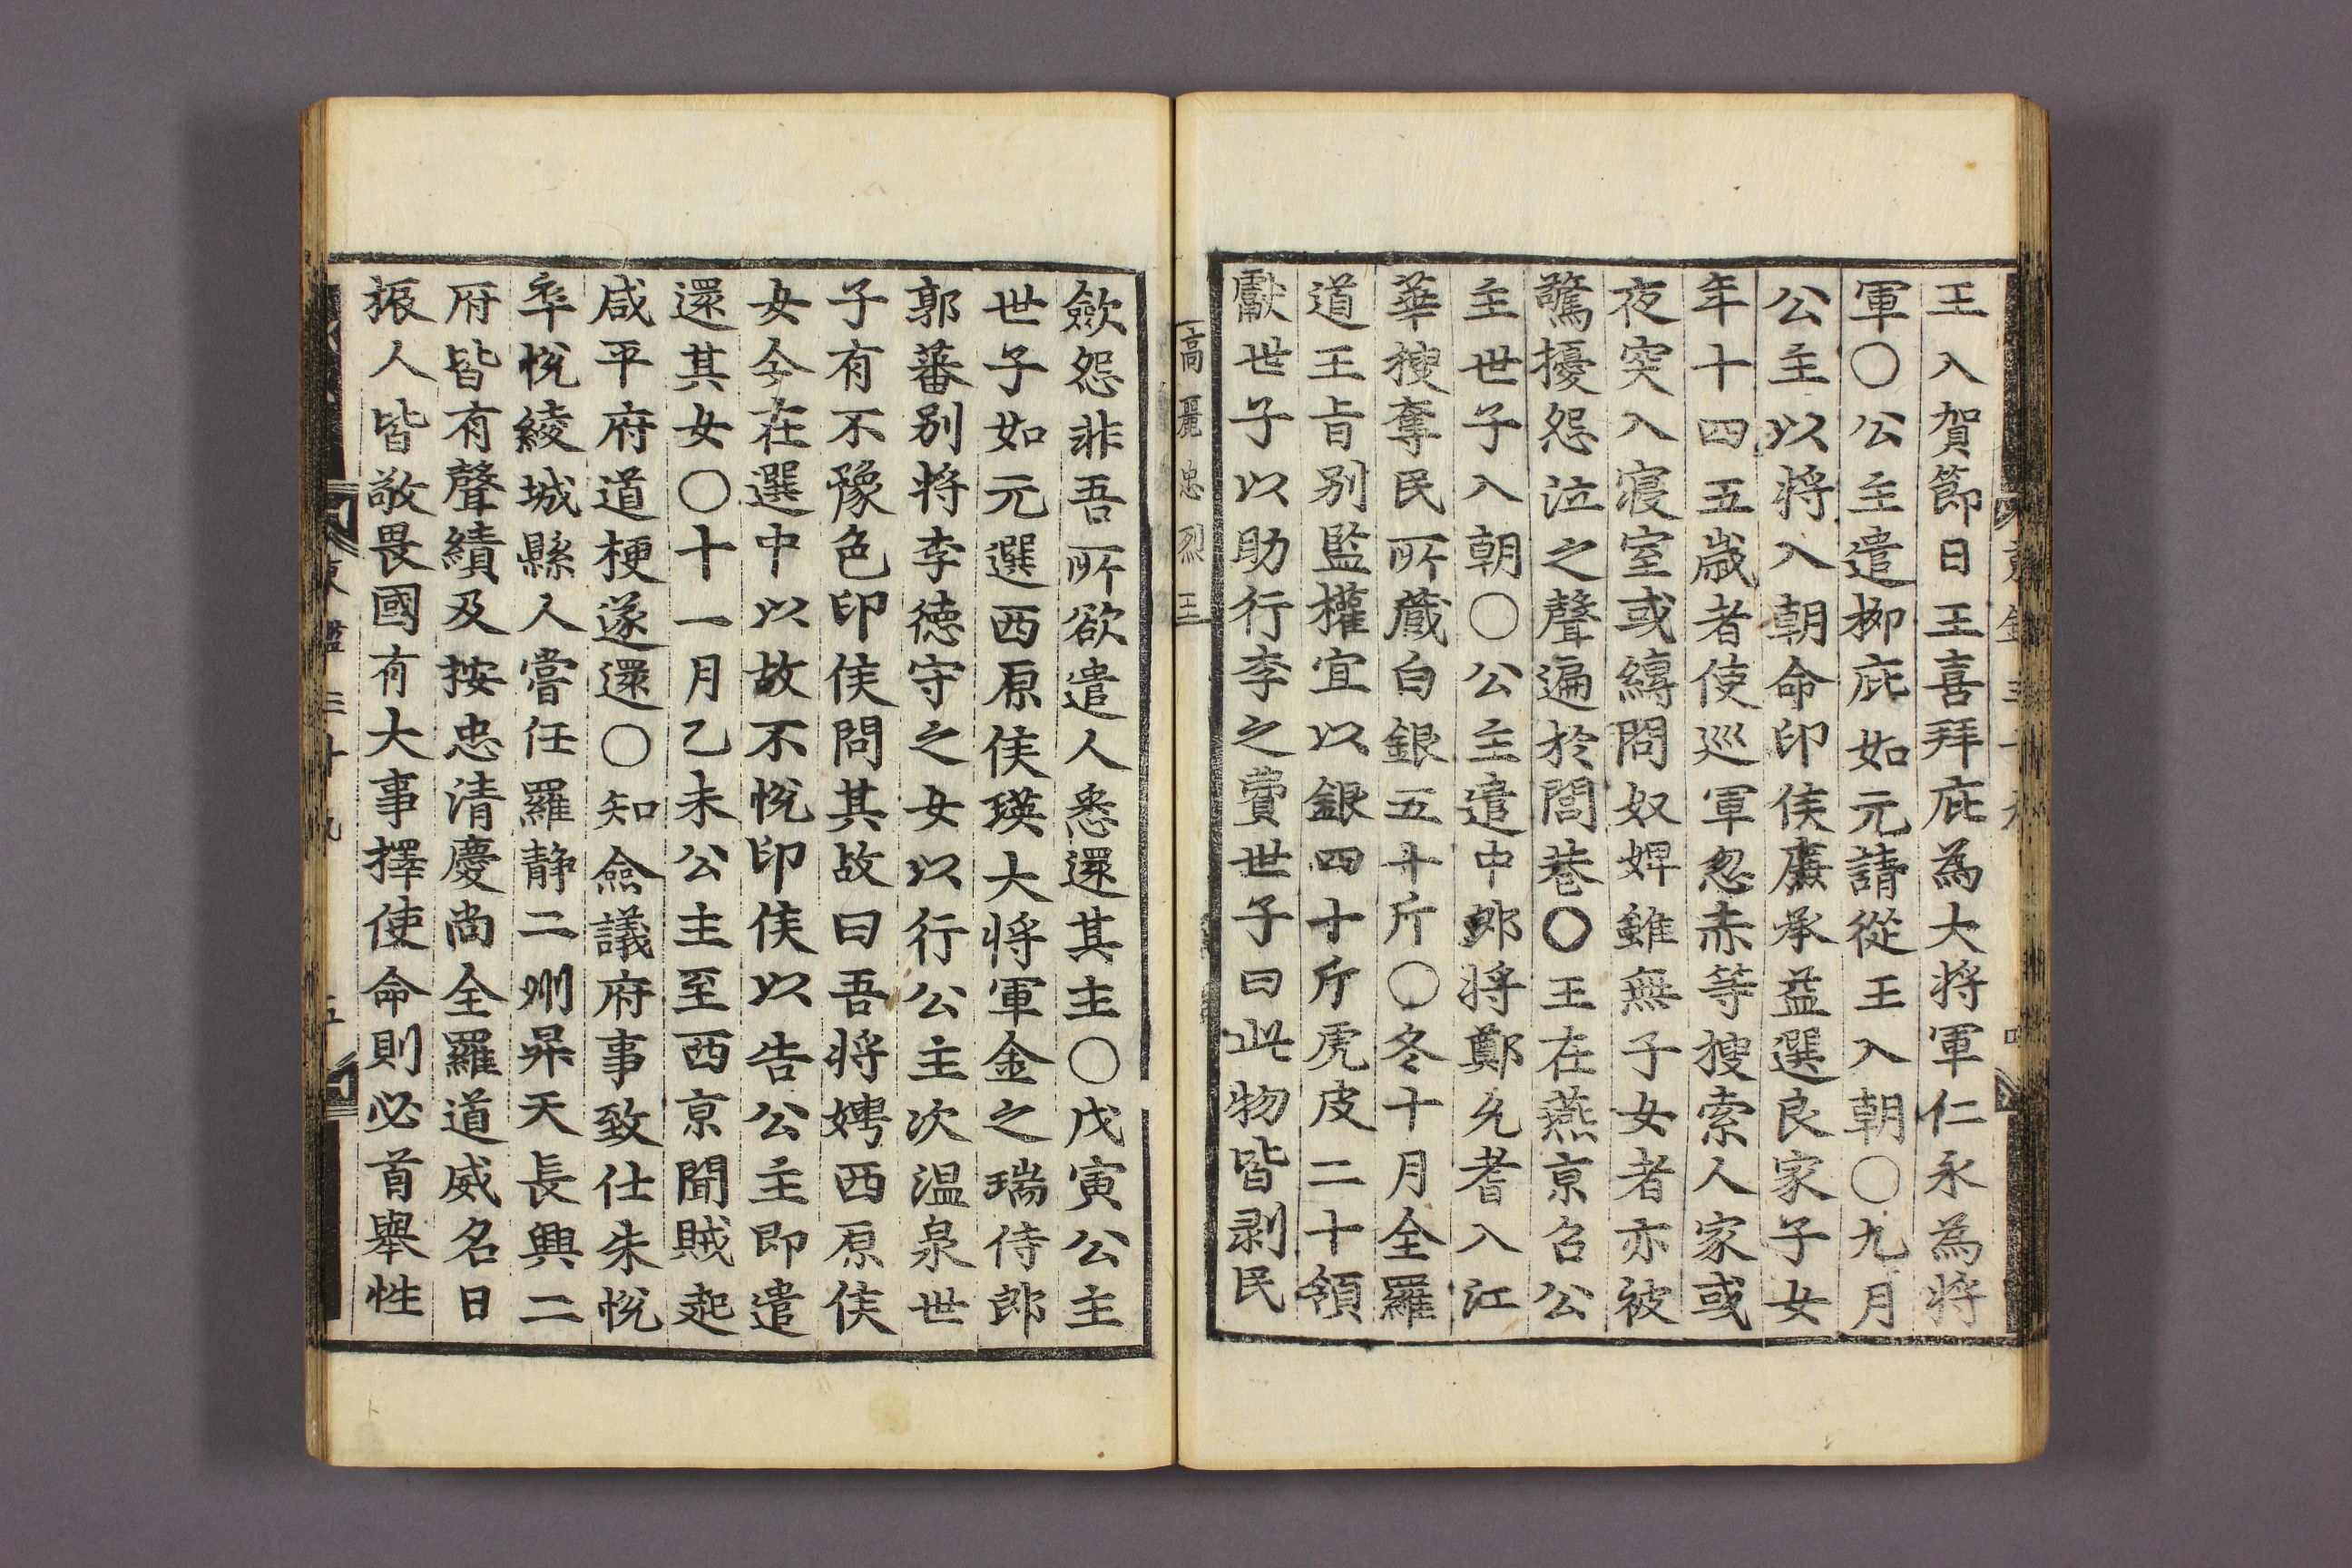 王入賀節日王喜拜庇為大將軍仁永為將
軍○公主遣柳庇如元請從王入朝○九月
公主以將入朝命印侯廉承益選良家子女
年十四五歲者使巡軍忽赤等搜索人家或
夜突入寢室或縛問奴婢雖無子女者亦被
驚擾怨泣之聲遍於閭巷○王在燕京召公
主世子入朝○公主遣中郎將鄭允耆入江
華搜奪民所藏白銀五十斤○冬十月全羅
道王旨別監權宜以銀四十斤虎皮二十領
獻世子以助行李之費世子曰此物皆剥民
高麗忠烈王
歛怨非吾所欲遣人悉還其主○戊寅公主
世子如元選西原侯瑛大將軍金之瑞侍郎
郭蕃別將李德守之女以行公主次温泉世
子有不豫色印侯問其故曰吾將娉西原侯
女今在選中以故不悅印侯以告公主即遣
還其女○十一月乙未公主至西京聞賊起
咸平府道梗遂還○知僉議府事致仕朱悅
卒悅綾城縣人嘗任羅静二州昇天長興二
府皆有聲績及按忠清慶尚全羅道威名日
振人皆敬畏國有大事擇使命則必首舉性